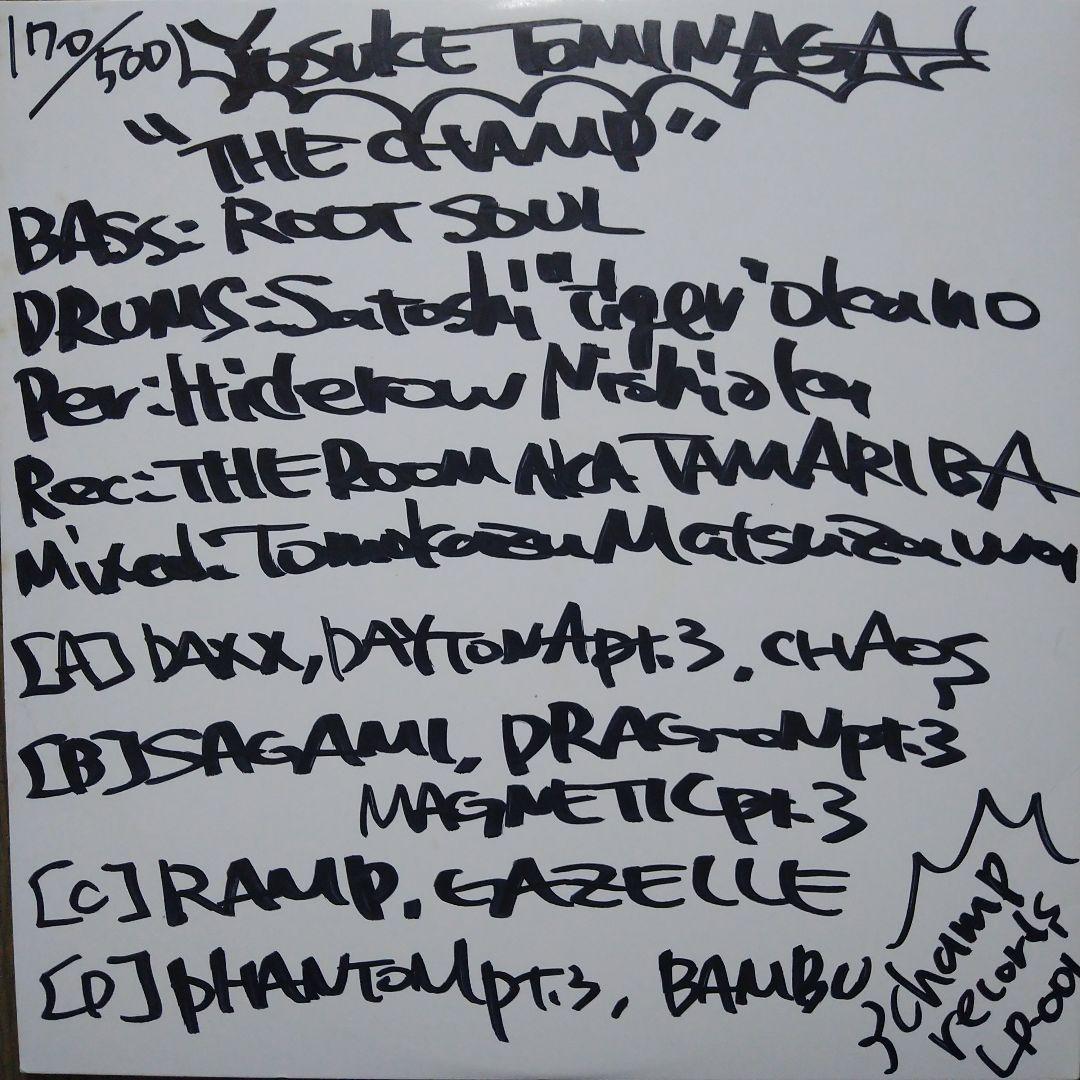 170/500 YOSUKE TOMINAGA
"THE CHAMP"
BASS: ROOT SOUL
DRUMS: Satoshi "tiger" okano
Per: Hiderow Nishioka
Rec: THE ROOM AKA TAMARIBA
Mixed: Tomokazu Matsuzawa
[A] DAXX, DAYTONA pt.3. CHAOS
[B] SAGAMI, DRAGON pt.3
MAGNETIC pt.3
[C] RAMP. GAZELLE
[D] PHANTOM pt.3, BAMBU
champ
records
LP-001